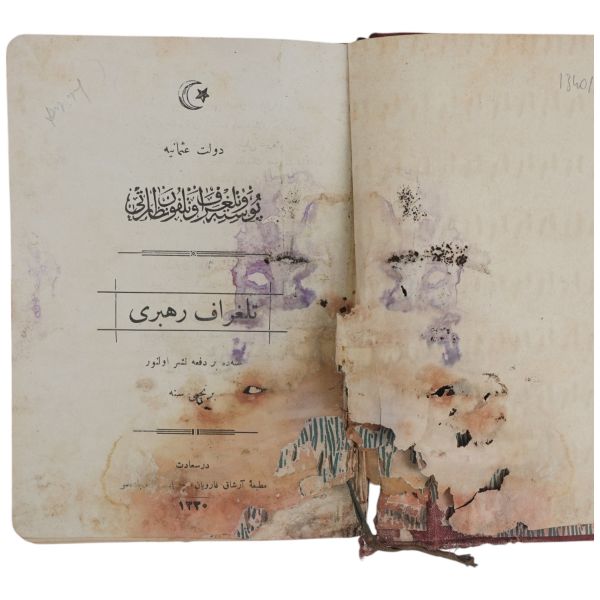 دولت عثمانیه
پوسته و تلغراف و تلفون نظارتی
تلغراف رهبری
سنه‌ده بر دفعه نشر اولنور
برنجی سنه
درسعادت
مطبعۀ آرشاق غارویان
١٣٣٠
1340/